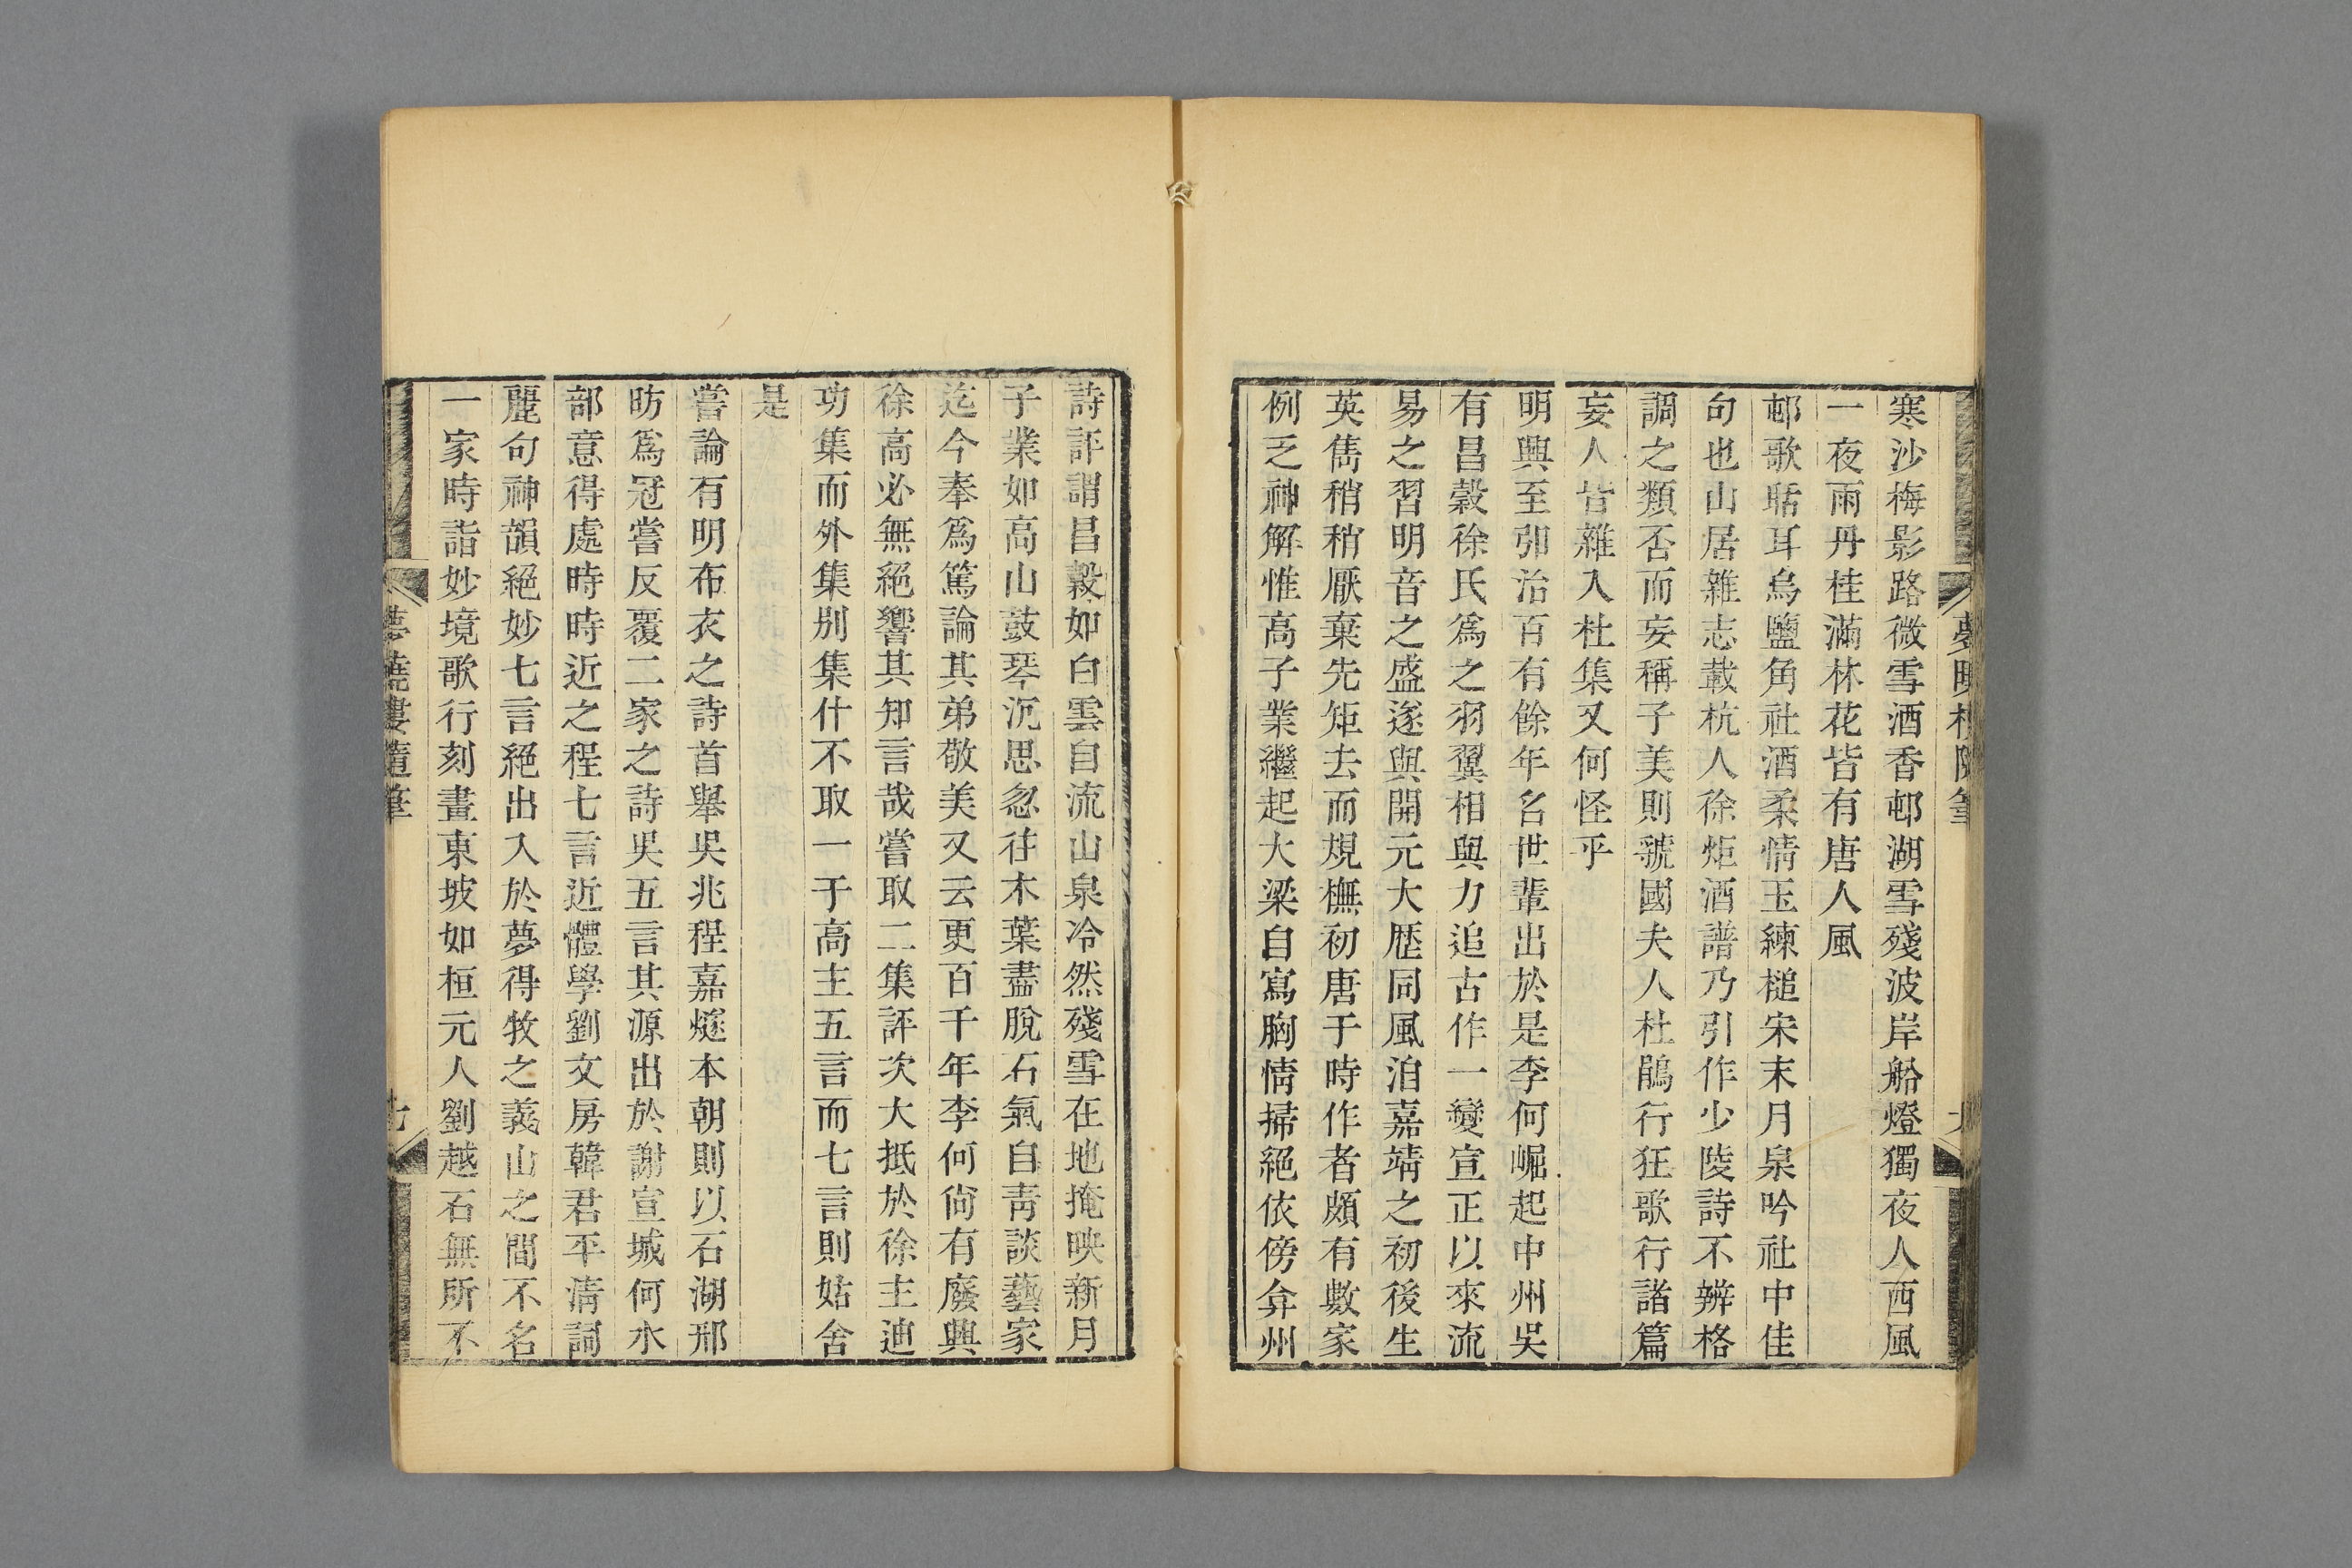 寒沙梅影路微雪酒香邨湖雪殘波岸船燈獨夜人西風
一夜雨丹桂滿林花皆有唐人風
邨歌聒耳烏鹽角社酒柔情玉練槌宋末月泉吟社中佳
句也山居雜志載杭人徐炬酒譜乃引作少陵詩不辨格
調之類否而妄稱子美則虢國夫人杜鵑行狂歌行諸篇
妄人皆雜入杜集又何怪乎
明興至弘治百有餘年名世輩出於是李何崛起中州吳
有昌穀徐氏爲之羽翼相與力追古作一變宣正以來流
易之習明音之盛遂與開元大歴同風洎嘉靖之初後生
英雋稍稍厭棄先矩去而規橅初唐于時作者頗有數家
例乏神解惟高子業繼起大梁自寫胸情掃絕依傍弇州
詩評謂昌穀如白雲自流山泉冷然殘雪在地掩映新月
子業如高山鼓琴沉思忽往木葉盡脫石氣自靑談藝家
迄今奉爲篤論其弟敬美又云更百千年李何尙有廢興
徐高必無絕響其知言哉嘗取二集評次大抵於徐主迪
功集而外集别集什不取一于高主五言而七言則姑舍
是
嘗論有明布衣之詩首舉吳兆程嘉燧本朝則以石湖邢
昉爲冠嘗反覆二家之詩吳五言其源出於謝宣城何水
部意得處時時近之程七言近體學劉文房韓君平清詞
麗句神韻絕妙七言絕出入於夢得牧之義山之間不名
一家時詣妙境歌行刻畫東坡如桓元人劉越石無所不
夢曉樓隨筆
七